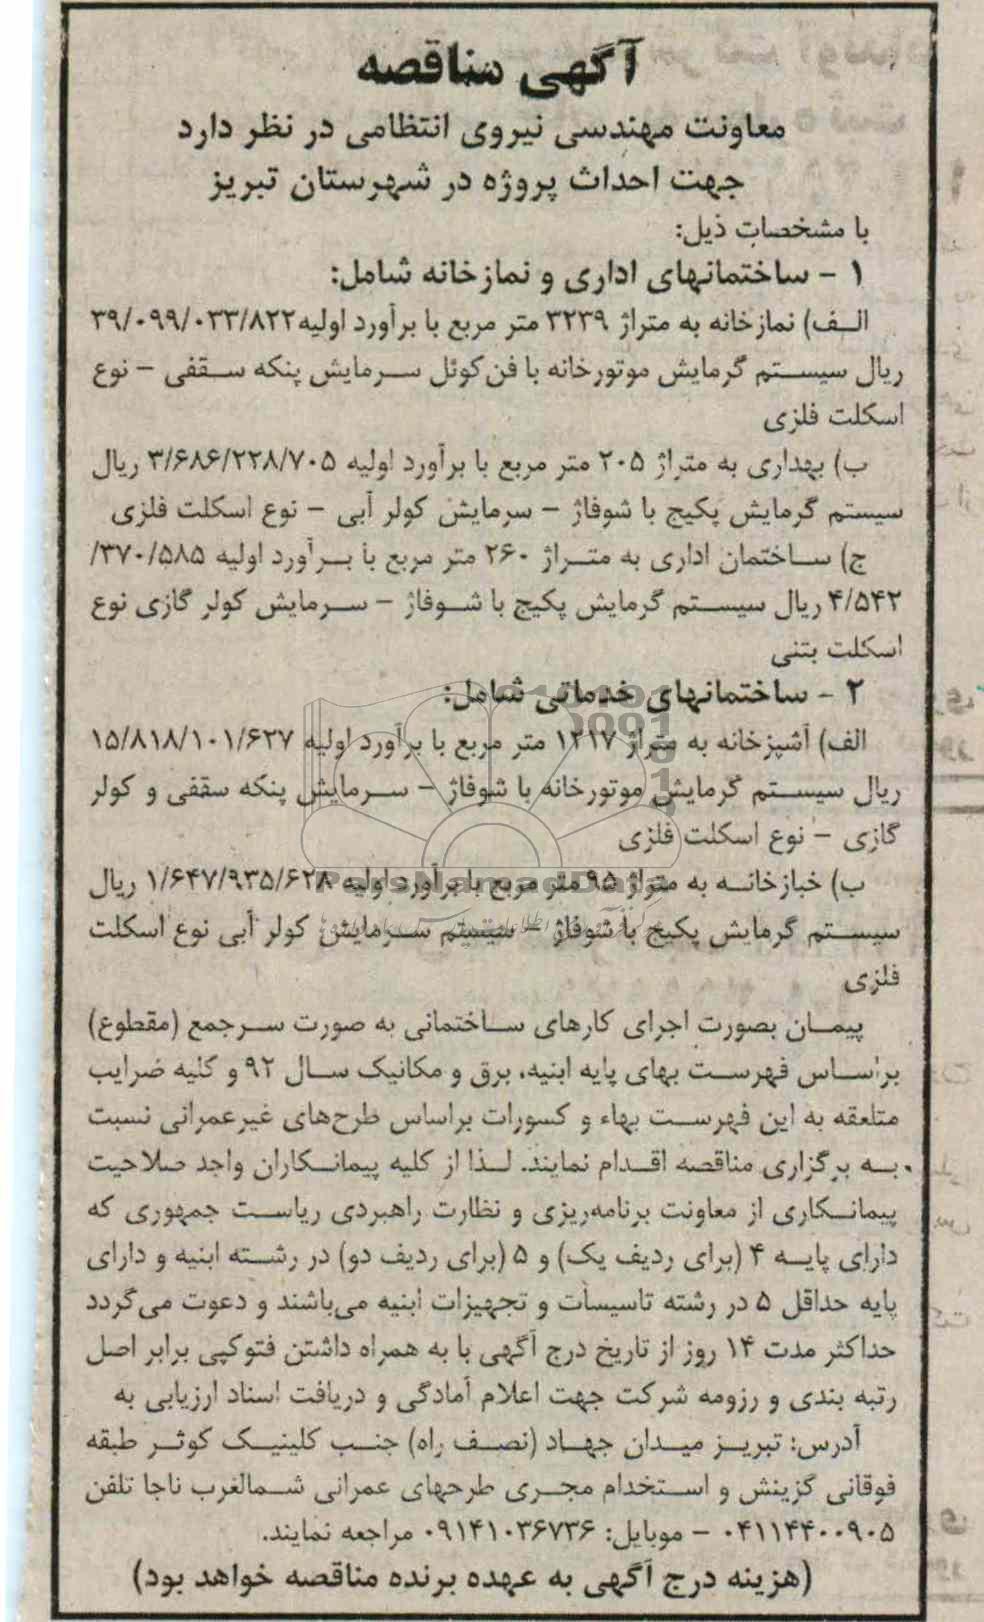 آگهی مناقصه
معاونت مهندسی نیروی انتظامی در نظر دارد
جهت احداث پروژه در شهرستان تبریز
با مشخصات ذیل:
۱ - ساختمانهای اداری و نمازخانه شامل:
الف) نمازخانه به متراژ ۳۲۳۹ متر مربع با برآورد اولیه ۳۹/۰۹۹/۰۳۳/۸۲۲
ریال سیستم گرمایش موتورخانه با فن کوئل سرمایش پنکه سقفی - نوع
اسکلت فلزی
ب) بهداری به متراژ ۲۰۵ متر مربع با برآورد اولیه ۳/۶۸۶/۲۲۸/۷۰۵ ریال
سیستم گرمایش پکیج با شوفاژ - سرمایش کولر آبی - نوع اسکلت فلزی
ج) ساختمان اداری به متراژ ۲۶۰ متر مربع با برآورد اولیه ۳۷۰/۵۸۵/
۴/۵۴۲ ریال سیستم گرمایش پکیج با شوفاژ - سرمایش کولر گازی نوع
اسکلت بتنی
۲ - ساختمانهای خدماتی شامل:
الف) آشپزخانه به متراژ ۱۲۱۷ متر مربع با برآورد اولیه ۱۵/۸۱۸/۱۰۱/۶۲۷
ریال سیستم گرمایش موتورخانه با شوفاژ - سرمایش پنکه سقفی و کولر
گازی - نوع اسکلت فلزی
ب) خبازخانه به متراژ ۹۵ متر مربع با برآورد اولیه ۱/۶۴۷/۹۳۵/۶۲۸ ریال
ParsNamadData
سیستم گرمایش پکیج با شوفاژ - سیستم سرمایش کولر آبی نوع اسکلت
فلزی
پیمان بصورت اجرای کارهای ساختمانی به صورت سرجمع (مقطوع)
براساس فهرست بهای پایه ابنیه، برق و مکانیک سال ۹۲ و کلیه ضرایب
متعلقه به این فهرست بهاء و کسورات براساس طرح‌های غیرعمرانی نسبت
به برگزاری مناقصه اقدام نمایند. لذا از کلیه پیمانکاران واجد صلاحیت
پیمانکاری از معاونت برنامه‌ریزی و نظارت راهبردی ریاست جمهوری که
دارای پایه ۴ (برای ردیف یک) و ۵ (برای ردیف دو) در رشته ابنیه و دارای
پایه حداقل ۵ در رشته تاسیسات و تجهیزات ابنیه می‌باشند و دعوت می‌گردد
حداکثر مدت ۱۴ روز از تاریخ درج آگهی با به همراه داشتن فتوکپی برابر اصل
رتبه بندی و رزومه شرکت جهت اعلام آمادگی و دریافت اسناد ارزیابی به
آدرس: تبریز میدان جهاد (نصف راه) جنب کلینیک کوثر طبقه
فوقانی گزینش و استخدام مجری طرحهای عمرانی شمالغرب ناجا تلفن
۰۴۱۱۴۴۰۰۹۰۵ - موبایل: ۰۹۱۴۱۰۳۶۷۳۶ مراجعه نمایند.
(هزینه درج آگهی به عهده برنده مناقصه خواهد بود)